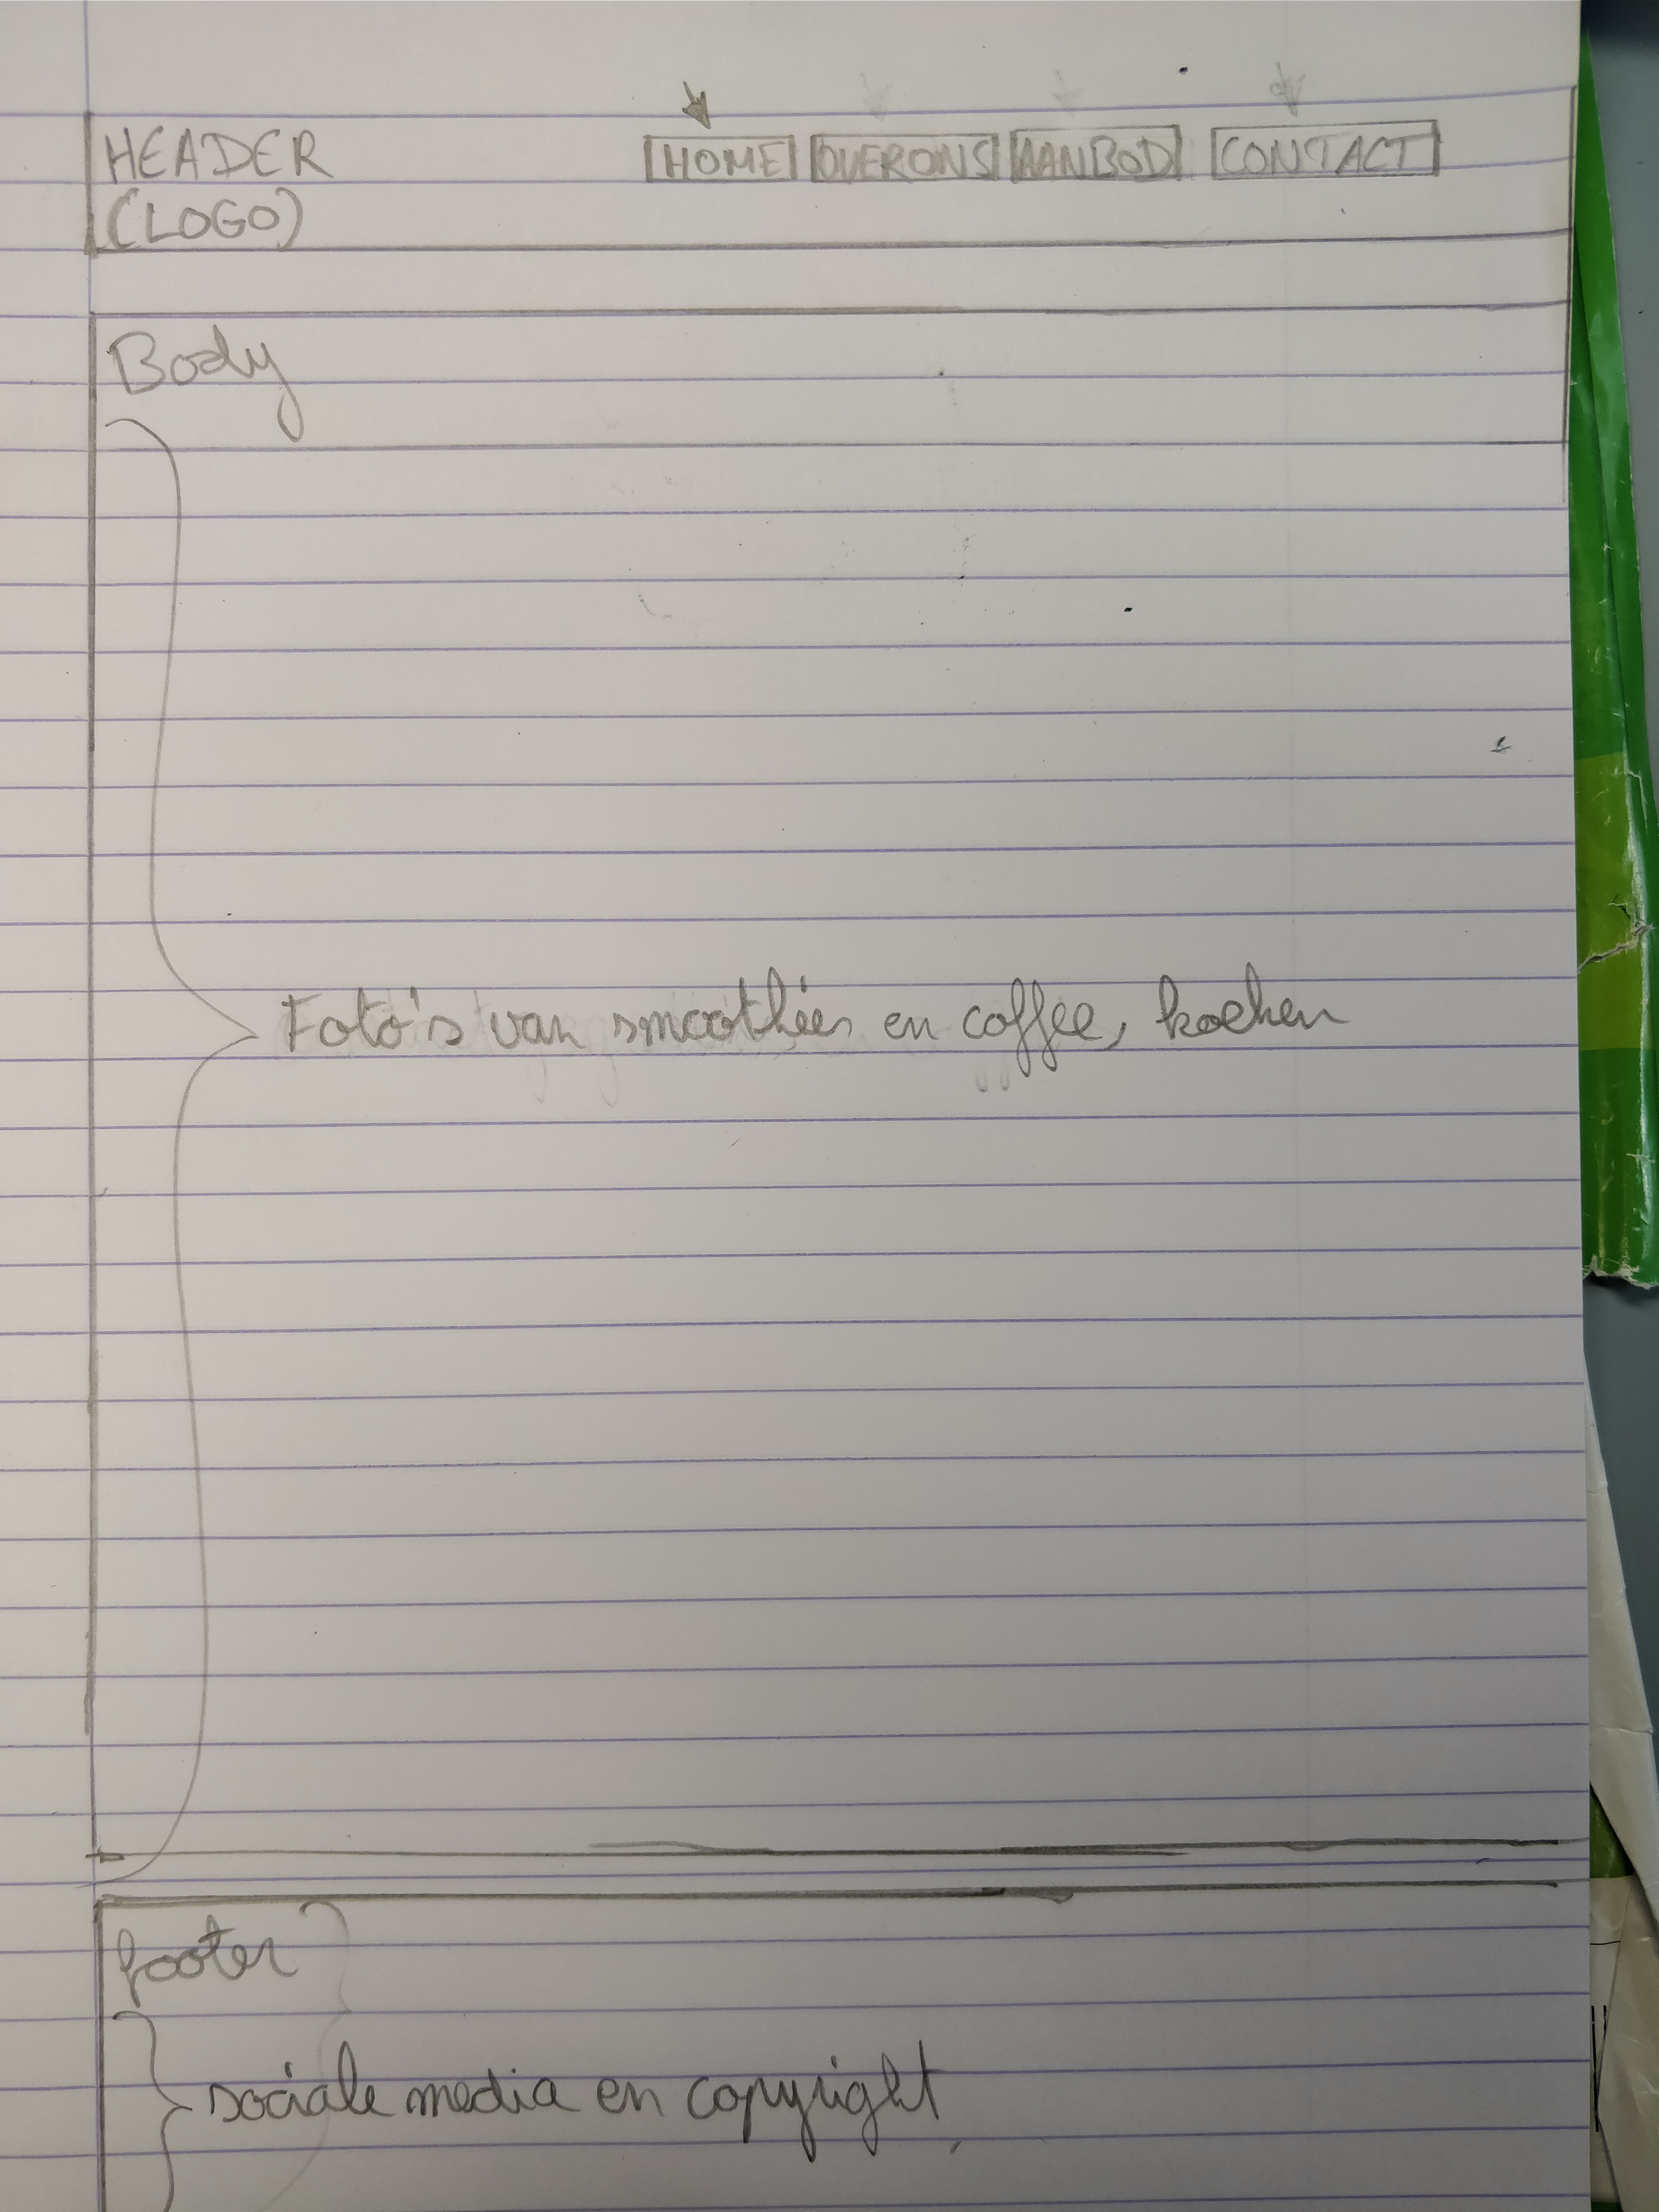 HEADER
(LOGO)
HOME OVERONS AANBOD CONTACT
Body
Foto's van smoothies en coffee, koeken
footer
sociale media en copyright